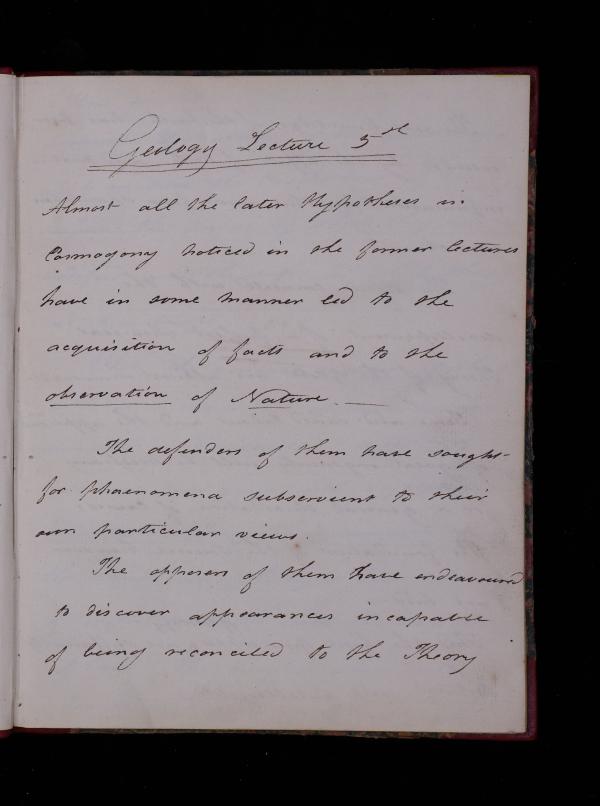 Geology Lecture 5th
Almost all the later Hypotheses in
Cosmogony noticed in the former lectures
have in some manner led to the
acquisition of facts and to the
observation of Nature. —
The defenders of them have sought
for phaenomena subservient to their
own particular views.
The opposers of them have endeavoured
to discover appearances incapable
of being reconciled to the Theory